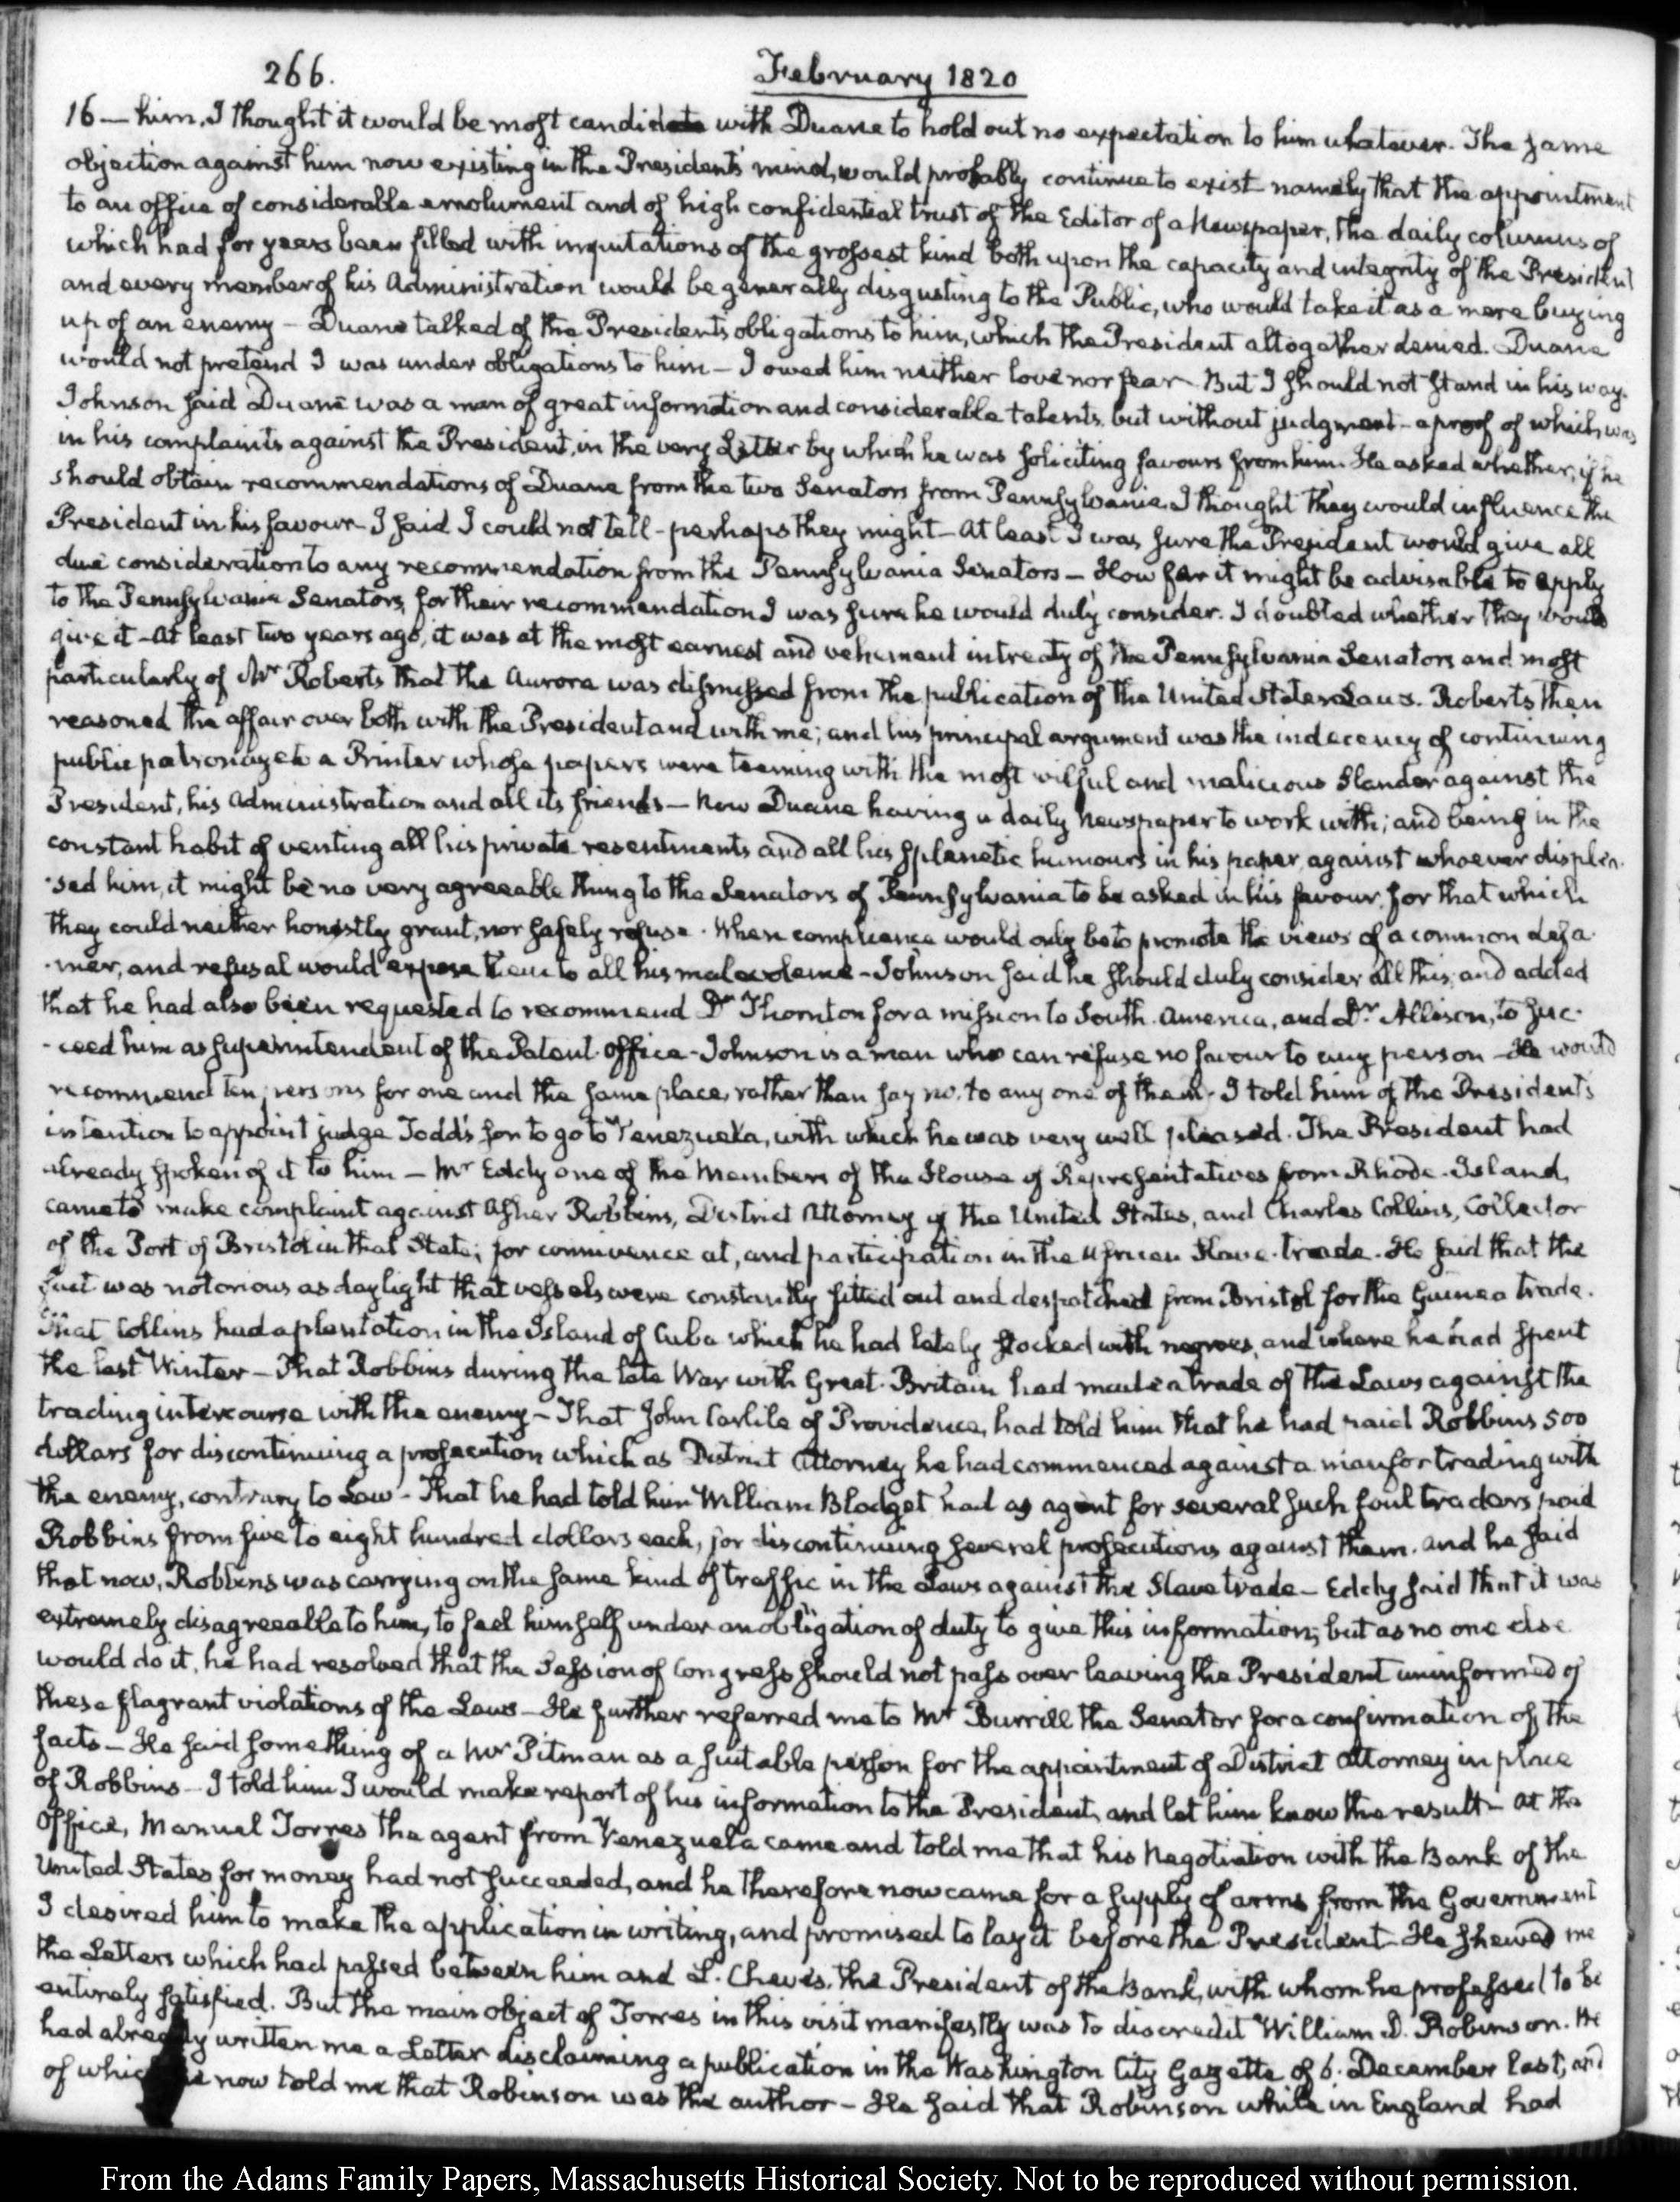 266.
February 1820
16 — him, I thought it would be most candid with Duane to hold out no expectation to him whatever. The same
objection against him now existing in the President's mind, would probably continue to exist namely that the appointment
to an office of considerable emolument and of high confidential trust of the Editor of a Newspaper, the daily columns of
which had for years been filled with imputations of the grossest kind both upon the capacity and integrity of the President
and every member of his Administration would be generally disgusting to the Public, who would take it as a mere buying
up of an enemy – Duane talked of the Presidents obligations to him, which the President altogether denied. Duane
would not pretend I was under obligations to him – I owed him neither love nor fear – But I should not stand in his way.
Johnson said Duane was a man of great information and considerable talents, but without judgment – a proof of which was
in his complaints against the President, in the very Letter by which he was soliciting favours from him. He asked whether, if he
should obtain recommendations of Duane from the two Senators from Pennsylvania I thought they would influence the
President in his favour – I said I could not tell – perhaps they might – At least I was sure the President would give all
due consideration to any recommendation from the Pennsylvania Senators – How far it might be advisable to apply
to the Pennsylvania Senators, for their recommendation I was sure he would duly consider. I doubted whether they would
give it – At least two years ago, it was at the most earnest and vehement intreaty of the Pennsylvania Senators and most
particularly of Mr Roberts that the Aurora was dismissed from the publication of the United States Laws. Roberts then
reasoned the affair over both with the President and with me; and his principal argument was the indecency of continuing
public patronage to a Printer whose papers were teeming with the most wilful and malicious Slander against the
President, his Administration and all its friends – Now Duane having a daily Newspaper to work with; and being in the
constant habit of venting all his private resentments and all his splenetic humours in his paper, against whoever displea-
-sed him, it might be no very agreeable thing to the Senators of Pennsylvania to be asked in his favour, for that which
they could neither honestly grant, nor safely refuse. When compliance would only be to promote the views of a common defa-
-mer, and refusal would expose them to all his malevolence – Johnson said he should duly consider all this; and added
that he had also been requested to recommend Dr Thornton for a mission to South America, and Dr. Allison, to suc-
-ceed him as Superintendent of the Patent Office – Johnson is a man who can refuse no favour to any person – He would
recommend ten persons for one and the same place, rather than say no, to any one of them – I told him of the President's
intention to appoint judge Todd's son to go to Venezuela, with which he was very well pleased. The President had
already spoken of it to him – Mr Eddy one of the Members of the House of Representatives from Rhode-Island,
came to make complaint against Asher Robbins, District Attorney of the United States, and Charles Collins, Collector
of the Port of Bristol in that State; for connivence at, and participation in the African Slave-trade. He said that the
fact was notorious as daylight that vessels were constantly fitted out and despatched from Bristol for the Guinea trade.
That Collins had a plantation in the Island of Cuba which he had lately stocked with negroes, and where he had spent
the last Winter – That Robbins during the late War with Great-Britain had made a trade of the Laws against the
trading intercourse with the enemy – That John Carlile of Providence, had told him that he had paid Robbins 500
dollars for discontinuing a prosecution which as District Attorney he had commenced against a man for trading with
the enemy, contrary to Law – That he had told him William Blodget had as agent for several such foul traders paid
Robbins from five to eight hundred dollars each, for discontinuing several prosecutions against them. and he said
that now, Robbins was carrying on the same kind of traffic in the Laws against the Slave trade – Eddy said that it was
extremely disagreeable to him, to feel himself under an obligation of duty to give this information; but as no one else
would do it, he had resolved that the Session of Congress should not pass over leaving the President uninformed of
these flagrant violations of the Laws – He further referred me to Mr Burrill the Senator for a confirmation of the
facts – He said something of a Mr Pitman as a suitable person for the appointment of District Attorney in place
of Robbins – I told him I would make report of his information to the President, and let him know the result – At the
Office, Manuel Torres the agent from Venezuela came and told me that his Negotiation with the Bank of the
United States for money had not succeeded, and he therefore now came for a supply of arms from the Government
I desired him to make the application in writing, and promised to lay it before the President – He shewed me
the Letters which had passed between him and L. Cheves, the President of the Bank, with whom he professed to be
entirely satisfied. But the main object of Torres in this visit manifestly was to discredit William D. Robinson. He
had already written me a Letter disclaiming a publication in the Washington City Gazette of 6. December last, and
of which he now told me that Robinson was the author – He said that Robinson while in England had
From the Adams Family Papers, Massachusetts Historical Society. Not to be reproduced without permission.